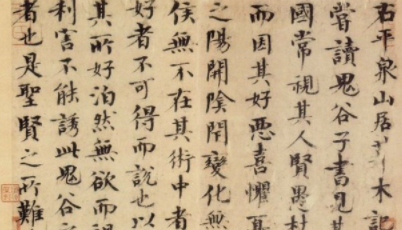 右平泉山居草木記
嘗讀鬼谷子書見其
國常視其人賢愚材
而因其好惡喜懼
之陽開陰閉變化無
侯無不在其術中者
好者不可得而說也以
其所好泊然無欲而禍
利害不能誘此鬼谷
者也是聖賢之所難